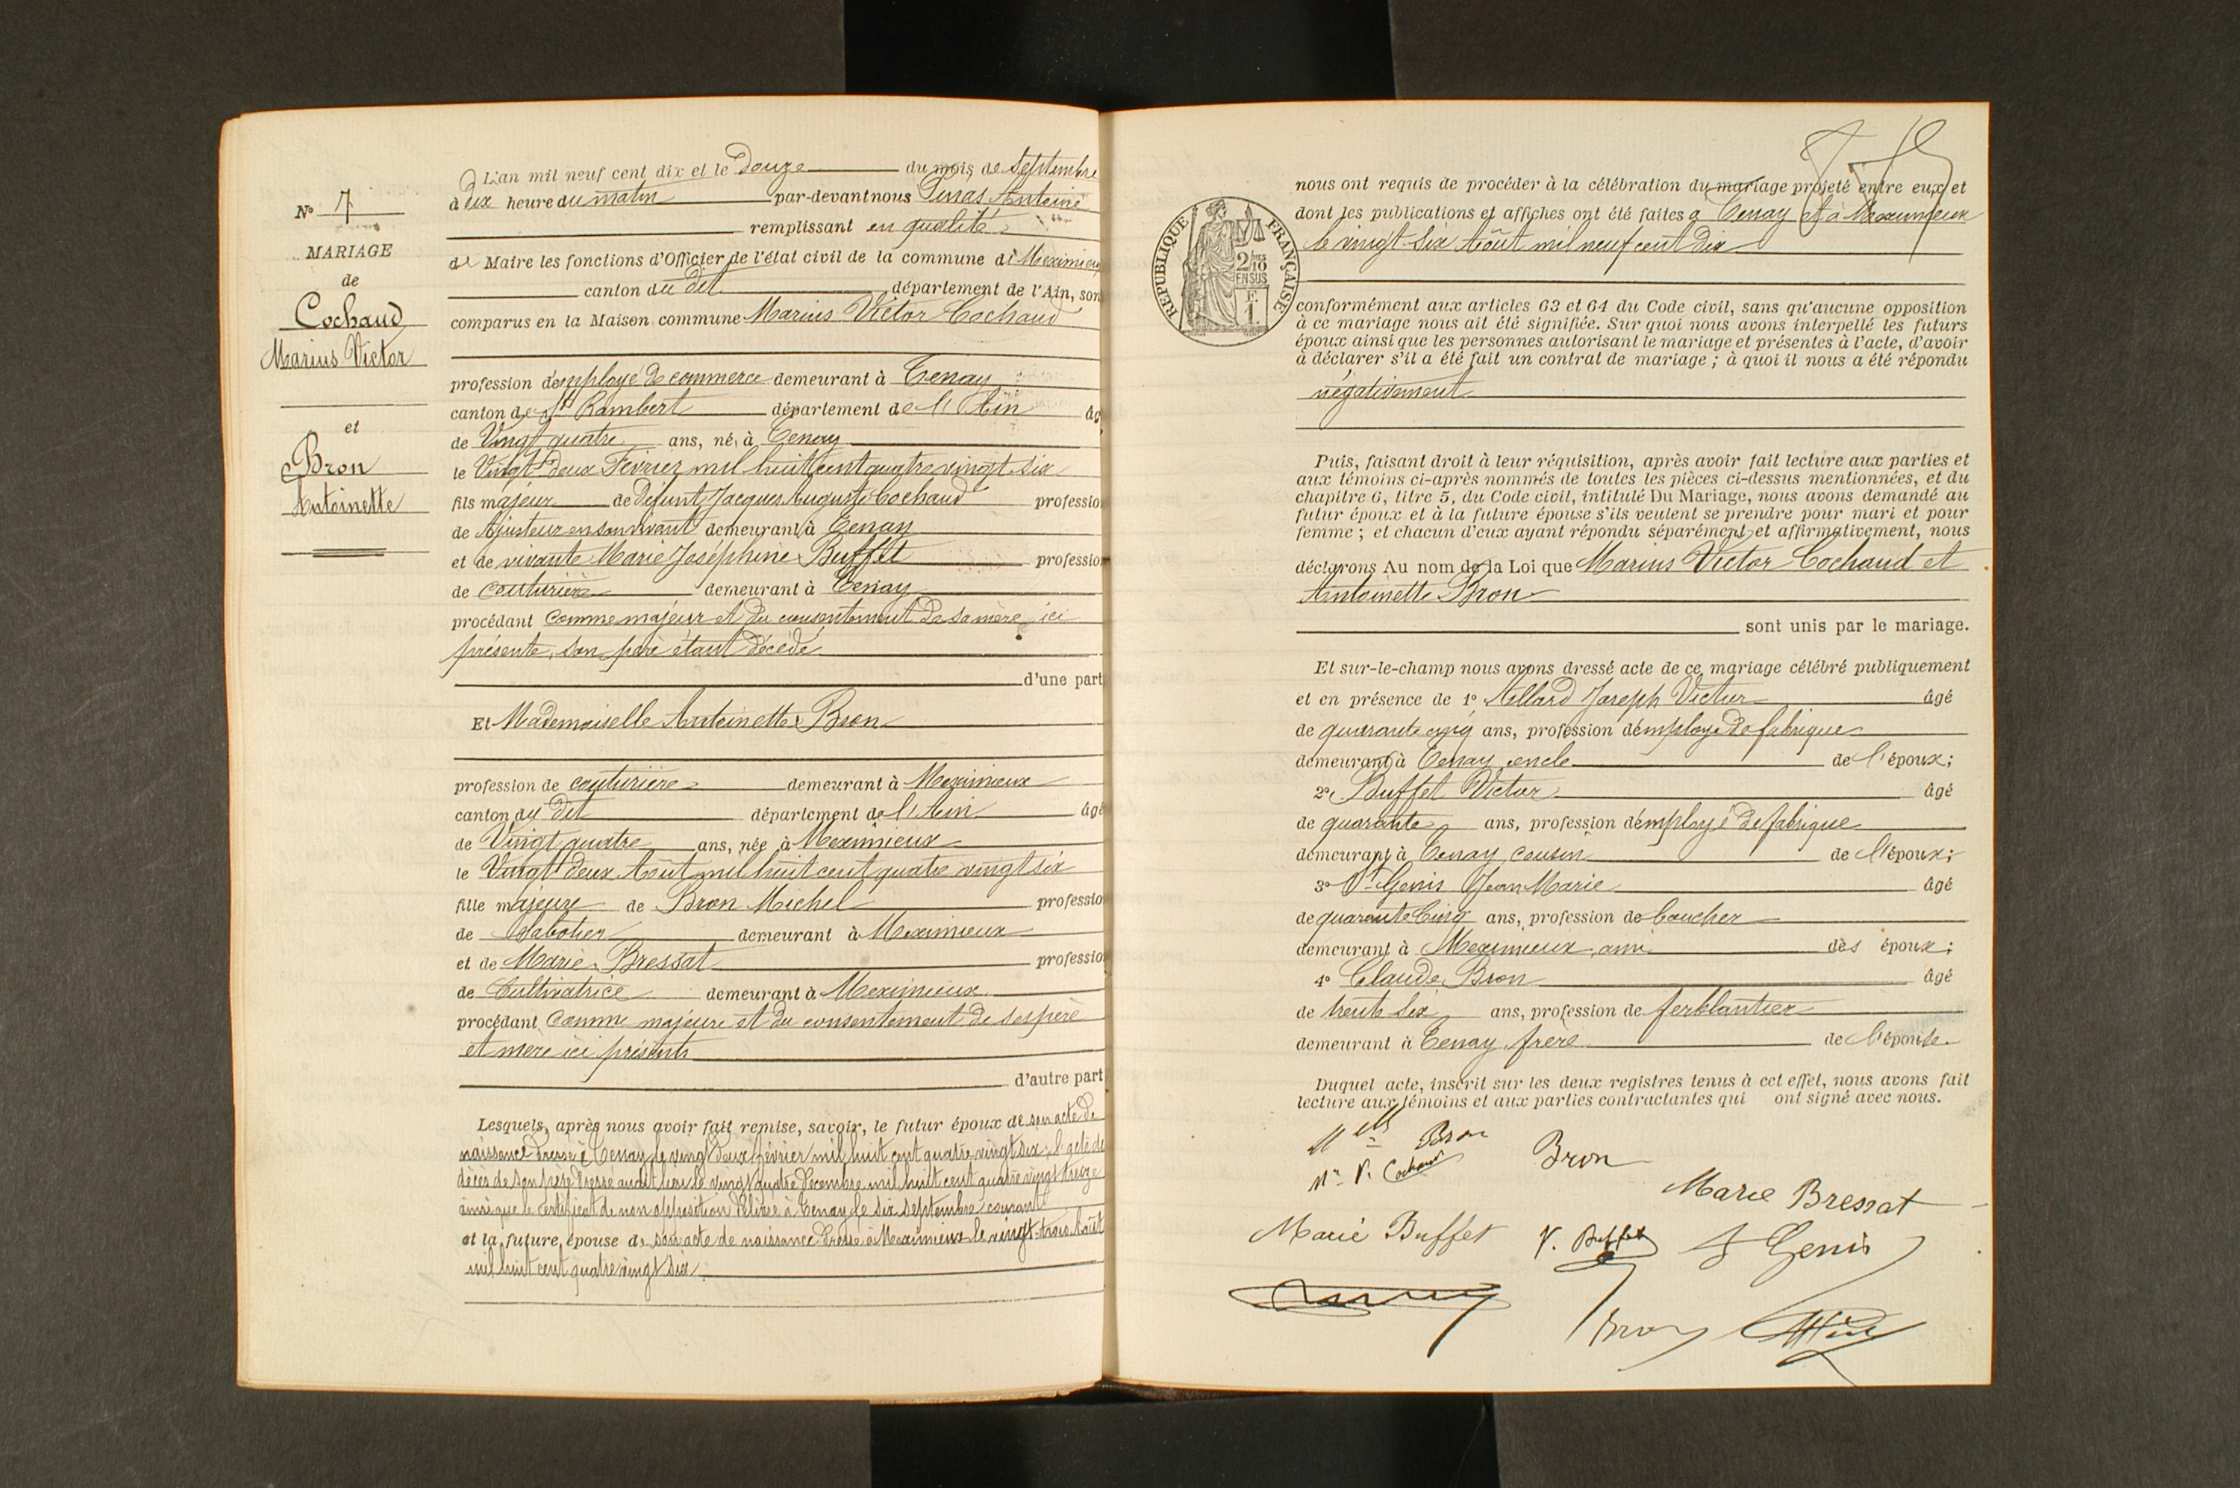 N° 7
MARIAGE
de
Cochaud
Marius Victor
et
Bron
Antoinette
L'an mil neuf cent dix et le Douze du mois de Septembre
à dix heure du matin par-devant nous Antoine
remplissant en qualité
de Maire les fonctions d'Officier de l'état civil de la commune de Meximieux
canton du dit département de l'Ain, son
comparus en la Maison commune Marius Victor Cochaud
profession d'employé de commerce demeurant à Tenay
canton de St Rambert département de l'Ain âgé
de Vingt quatre ans, né à Tenay
le Vingt deux Février mil huit cent quatre vingt six
fils majeur de Défunt Jacques Auguste Cochaud profession
de Ajusteur en son vivant demeurant à Tenay
et de vivante Marie Joséphine Buffet profession
de couturière demeurant à Tenay
procédant comme majeur et du consentement de sa mère ici
présente, son père étant décédé
d'une part
Et Mademoiselle Antoinette Bron
profession de couturière demeurant à Meximieux
canton du dit département de l'Ain âgé
de Vingt quatre ans, née à Meximieux
le Vingt deux Août mil huit cent quatre vingt six
fille majeure de Bron Michel profession
de Sabotier demeurant à Meximieux
et de Marie Bressat profession
de Cultivatrice demeurant à Meximieux
procédant comme majeure et du consentement de ses père
et mère ici présents
d'autre part
Lesquels, après nous avoir fait remise, savoir, le futur époux de son acte de
naissance dressé à Tenay le vingt deux février mil huit cent quatre vingt six, l'acte de
décès de son père dressé audit lieu le vingt quatre Décembre mil huit cent quatre vingt treize
ainsi que le certificat de non opposition délivré à Tenay le six septembre courant
et la future épouse de son acte de naissance dressé à Meximieux le vingt-trois Août
mil huit cent quatre vingt six
RÉPUBLIQUE FRANÇAISE
2/10
EN SUS
F.
1.
nous ont requis de procéder à la célébration du mariage projeté entre eux et
dont les publications et affiches ont été faites à Tenay et à Meximieux
le vingt-six Août mil neuf cent dix
conformément aux articles 63 et 64 du Code civil, sans qu'aucune opposition
à ce mariage nous ait été signifiée. Sur quoi nous avons interpellé les futurs
époux ainsi que les personnes autorisant le mariage et présentes à l'acte, d'avoir
à déclarer s'il a été fait un contrat de mariage ; à quoi il nous a été répondu
négativement
Puis, faisant droit à leur réquisition, après avoir fait lecture aux parties et
aux témoins ci-après nommés de toutes les pièces ci-dessus mentionnées, et du
chapitre 6, titre 5, du Code civil, intitulé Du Mariage, nous avons demandé au
futur époux et à la future épouse s'ils veulent se prendre pour mari et pour
femme ; et chacun d'eux ayant répondu séparément et affirmativement, nous
déclarons Au nom de la Loi que Marius Victor Cochaud et
Antoinette Bron
sont unis par le mariage.
Et sur-le-champ nous avons dressé acte de ce mariage célébré publiquement
et en présence de 1° Allard Joseph Victor âgé
de quarante cinq ans, profession d'employé de fabrique
demeurant à Tenay oncle de l'époux;
2° Buffet Victor âgé
de quarante ans, profession d'employé de fabrique
demeurant à Tenay cousin de l'époux;
3° St Genis Jean Marie âgé
de quarante Cinq ans, profession de boucher
demeurant à Meximieux, ami des époux;
4° Claude Bron âgé
de trente six ans, profession de ferblantier
demeurant à Tenay frère de l'épouse.
Duquel acte, inscrit sur les deux registres tenus à cet effet, nous avons fait
lecture aux témoins et aux parties contractantes qui ont signé avec nous.
Mlle Bron
Bron
Mr V. Cochaud
Marie Bressat
Marie Buffet V. Buffet St Genis
Bron